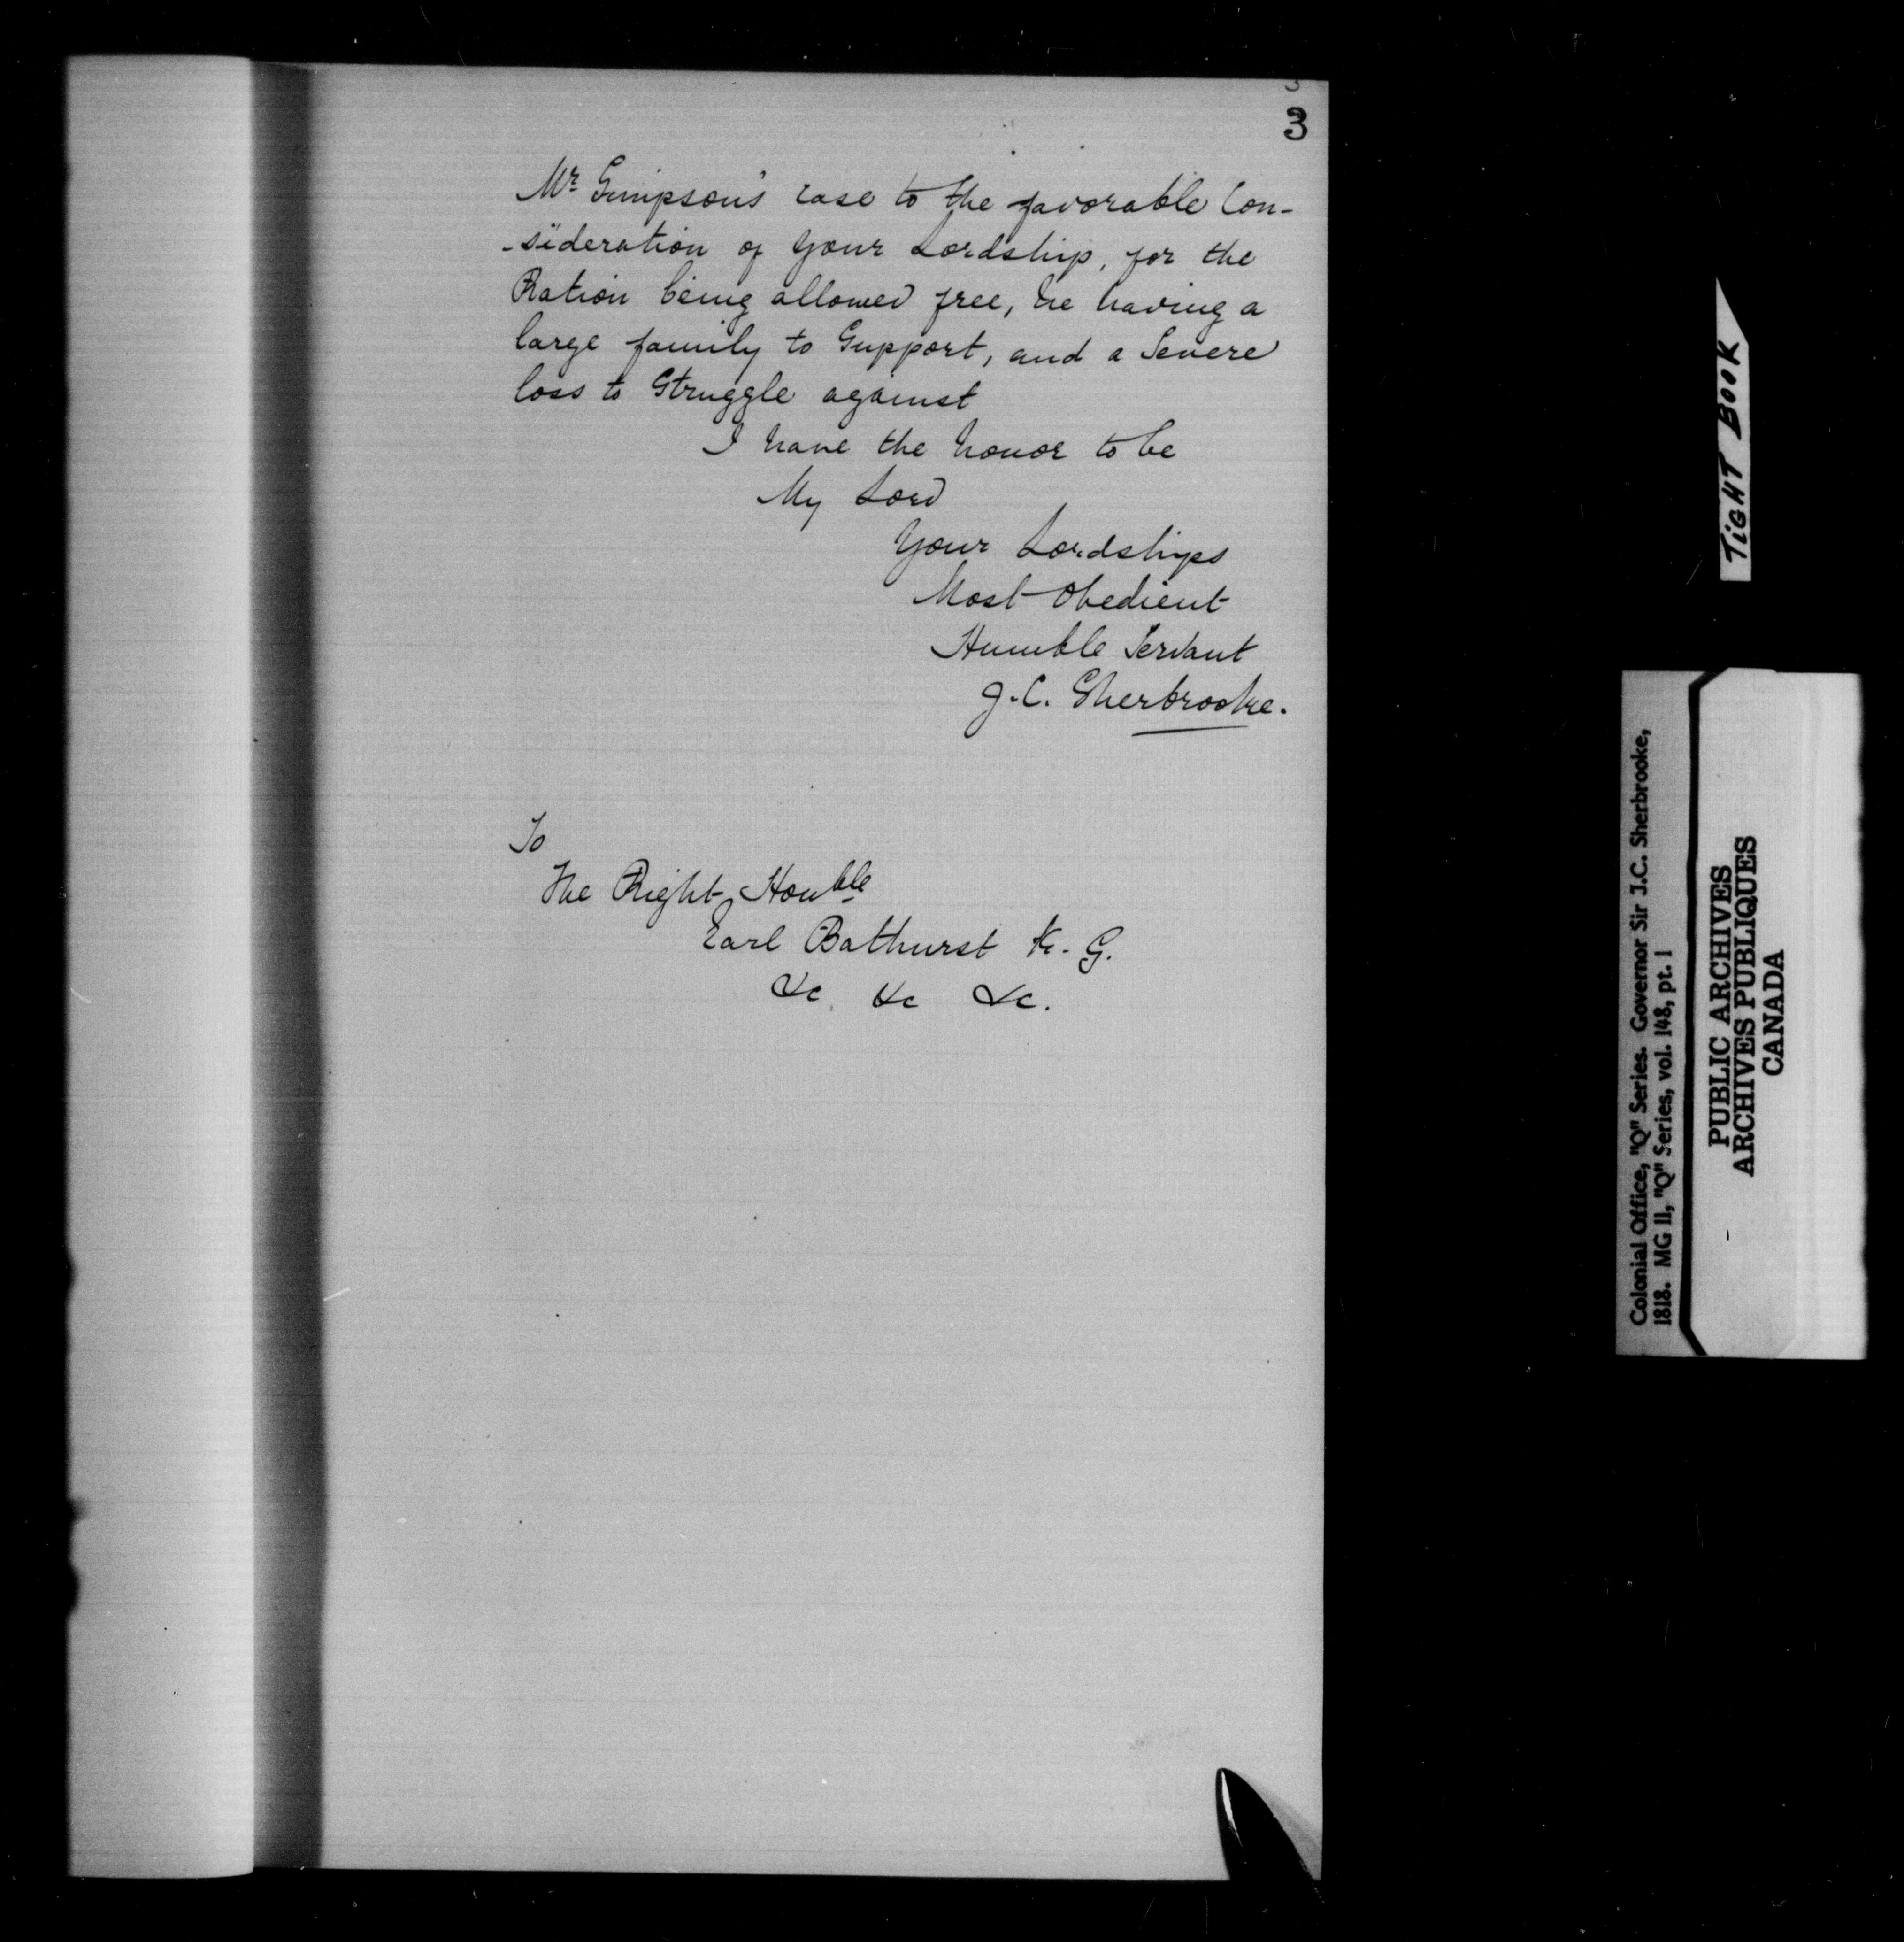 3
Mr Simpson's case to the favorable Con-
-sideration of Your Lordship, for the
Ration being allowed free, he having a
large family to Support, and a Severe
loss to Struggle against
I have the honor to be
My Lord
Your Lordships
Most Obedient
Humble Servant
J. C. Sherbrooke.
To
The Right Honble
Earl Bathurst K. G.
&c. &c &c.
TIGHT BOOK
Colonial Office, "Q" Series. Governor Sir J.C. Sherbrooke,
1818. MG 11, "Q" Series, vol. 148, pt. 1
PUBLIC ARCHIVES
ARCHIVES PUBLIQUES
CANADA